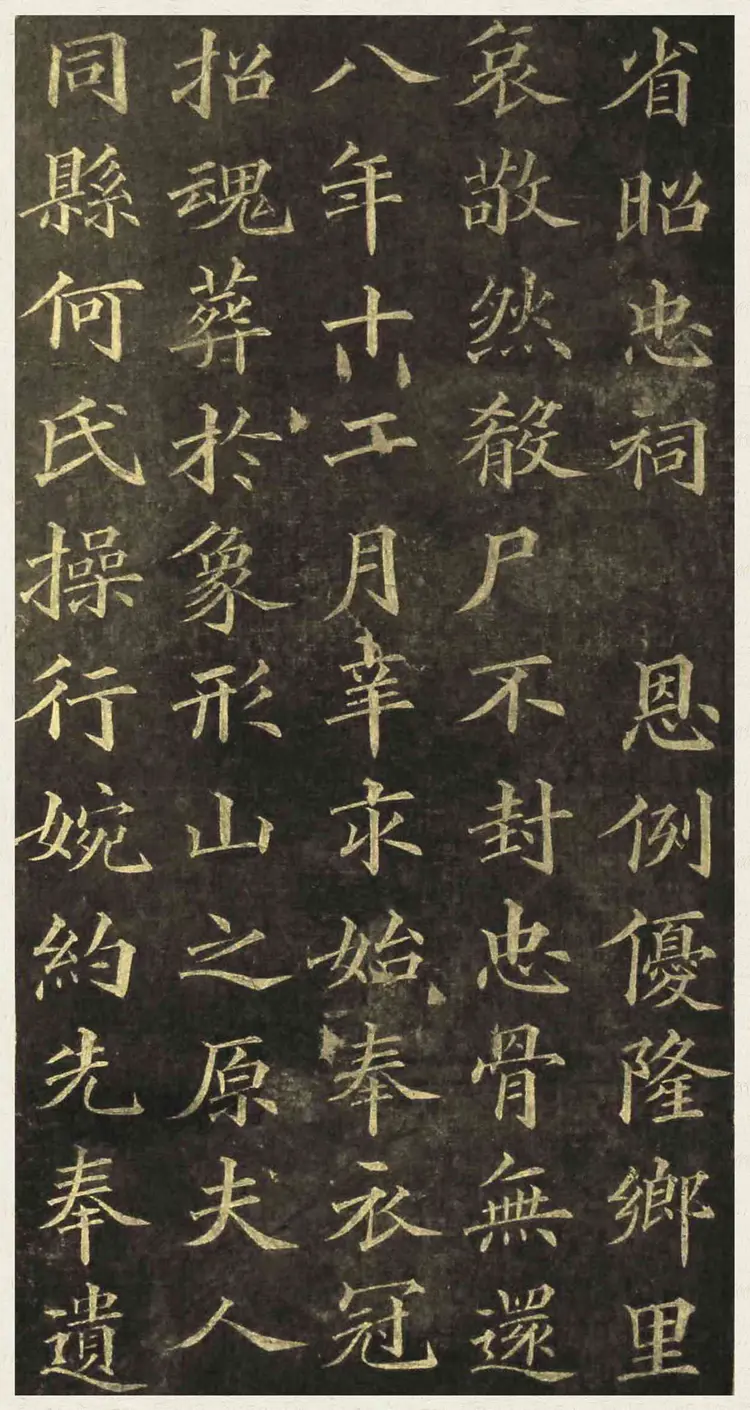 省昭忠祠 恩例優隆鄉里
哀敬然殺尸不封忠骨無還
八年十月辛未始奉衣冠
招魂葬於象形山之原夫人
同縣何氏操行婉約先奉遺